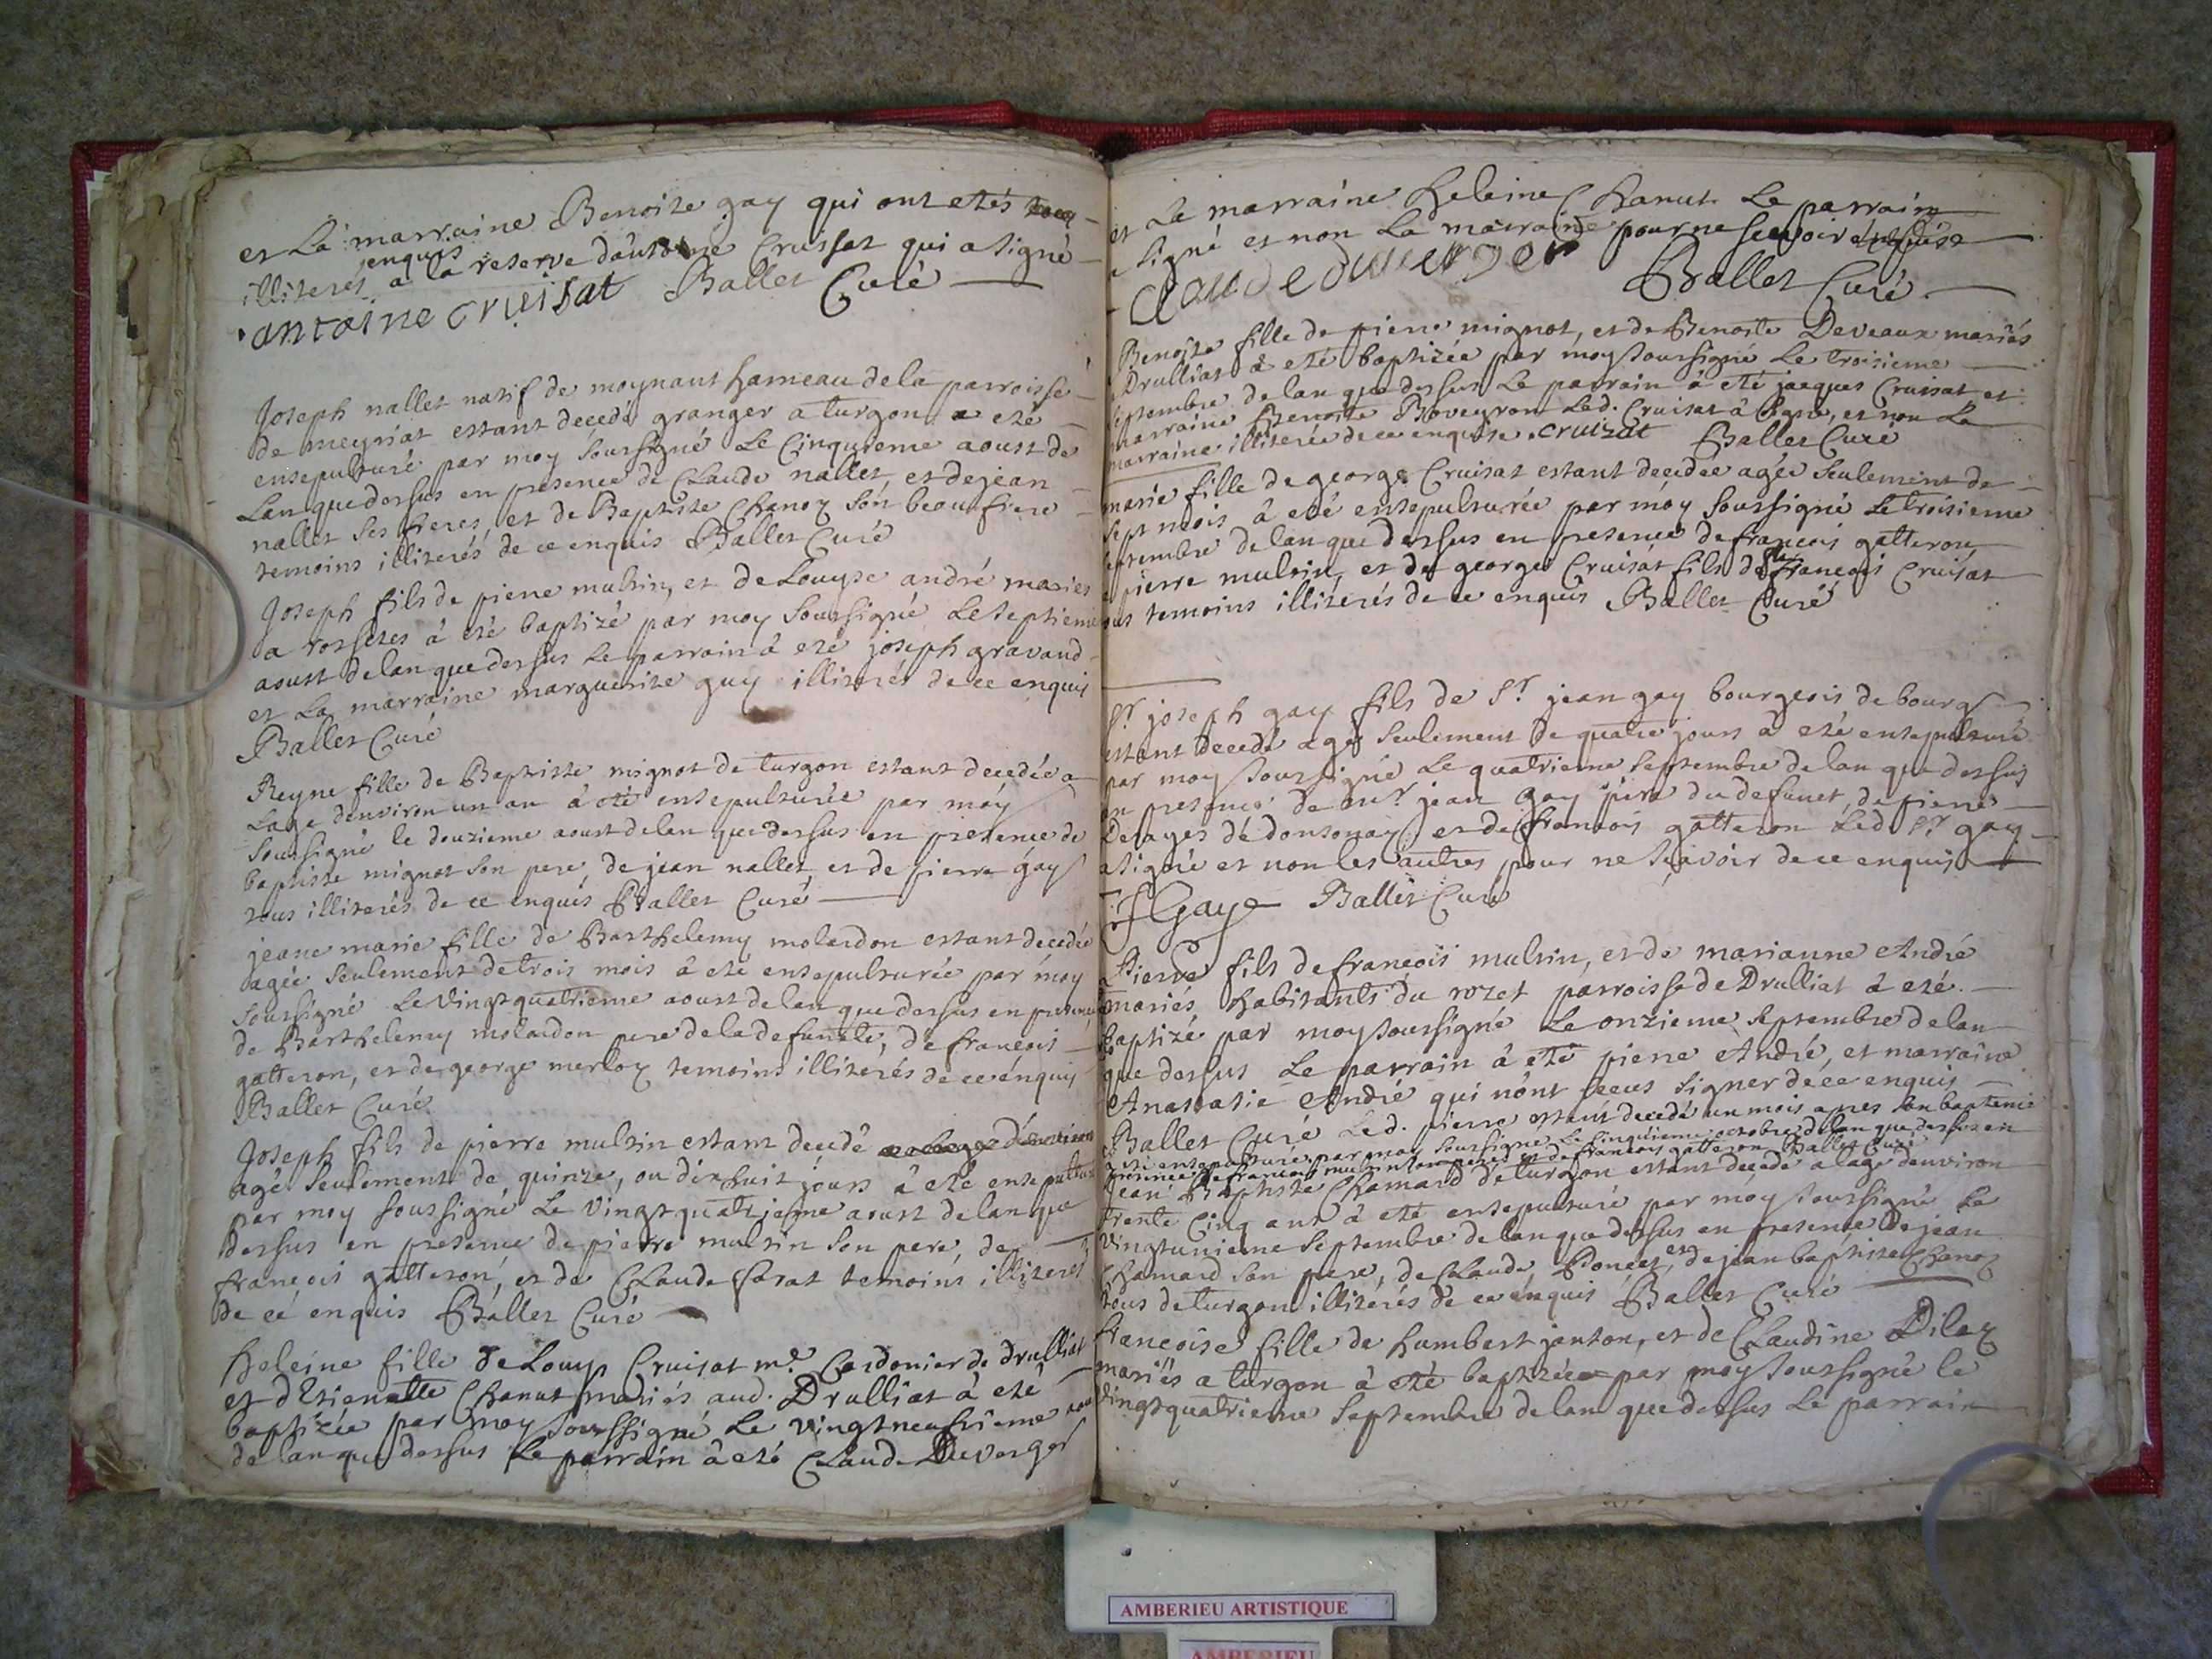 et La marraine Benoite gay qui ont etés
enquis
illiterés a la reserve dantoine Cruisat qui a signé
antoine cruisat Ballet Curé
Joseph nallet natif de moynant hameau de la parroisse
de meyriat estant decedé granger a turgon a eté
ensepulturé par moy soussigné Le Cinquieme aoust de
Lan que dessus en presence de Claude nallet, et de jean
nallet ses freres, et de Baptiste Chanoz son beaufrere
temoins illiterés de ce enquis Ballet Curé
Joseph fils de piere multin, et de Louyse andré mariés
a rossetes à eté baptizé par moy soussigné Le septieme
aoust de lan que dessus Le parrain à eté joseph gravand
et La marraine marguerite guy illiterés de ce enquis
Ballet Curé
Reyne fille de Baptiste mignot de turgon estant decedée a
Lage denviron un an à eté ensepulturée par moy
soussigné le douzieme aoust de lan que dessus en presence de
baptiste mignot son pere, de jean nallet, et de pierre gay
tous illiterés de ce enquis Ballet Curé
jeane marie fille de Barthelemy molardon estant decedée
agée seulement de trois mois à eté ensepulturée par moy
soussigné Le vingt quatrieme aoust de lan que dessus en presence
de Barthelemy molardon pere de la defuncte, de francois
galteron, et de george merloz temoins illiterés de ce enquis
Ballet Curé
Joseph fils de pierre multin estant decedé
agé seulement de quinze, ou dixhuit jours à eté ensepulturé
par moy soussigné Le vingt quatrieme aoust de lan que
dessus en presence de pierre multin son pere, de
françois galteron, et de Claude sarat temoins illiterés
de ce enquis Ballet Curé
heleine fille de Louys Cruisat me. Cordonier de drulliat
et dEtienette Chanut mariés aud. Drulliat à eté
baptizée par moy soussigné Le vingtneufvieme aoust
de lan que dessus Le parrain à eté Claude Duverger
et La marraine heleine Chanut. Le parrain
a signé et non La marraine pour ne scavoir enquise
Claude duverger Ballet Curé
Benoite fille de pierre mignot, et de Benoite Deveaux mariés
a Drulliat à eté baptizée par moy soussigné Le troisieme
septembre de lan que dessus Le parrain à eté jacques Cruisat, et
marraine Benoite Boveyron Led. Cruisat à signé, et non La
marraine illiterée de ce enquise. cruizat Ballet Curé
marie fille de george Cruisat estant decedée agée seulement de
sept mois à eté ensepulturée par moy soussigné Le troisieme
septembre de lan que dessus en presence de francois galteron,
de pierre multin, et de george Cruisat fils de feu francois Cruisat
tous temoins illiterés de ce enquis Ballet Curé
Sr. joseph gay fils de Sr. jean gay bourgeois de bourg
estant decedé agé seulement de quatre jours à eté ensepulturé
par moy soussigné Le quatrieme septembre de lan que dessus
en presence de Sr. jean gay pere du defunct, de pierre
Desages de donsonay, et de francois galteron Led. Sr. gay
a signé et non les autres pour ne sçavoir de ce enquis
JGaye Ballet Curé
Pierre fils de francois multin, et de marianne André
mariés habitants du rozet parroisse de Drulliat à eté
baptizé par moy soussigné Le onzieme septembre de lan
que dessus Le parrain à eté pierre André, et marraine
Anastasie André qui n'ont sceus signer de ce enquis
Ballet Curé Led. pierre estant decedé un mois apres son bapteme
a eté ensepulturé par moy soussigné Le cinquieme octobre de lan que dessus en
presence de francois multin son pere, et de francois galteron Ballet Curé
Jean Baptiste Chamard de turgon estant decedé a lage denviron
trente Cinq ans à eté ensepulturé par moy soussigné Le
Vingtunieme septembre de lan que dessus en presence de jean
Chamard son pere, de Claude Poncet, et de jean baptiste Chanoz
tous de turgon illiterés de ce enquis Ballet Curé
francoise fille de humbert janton, et de Claudine Dilaz
mariés a turgon à eté baptizée par moy soussigné le
Vingtquatrieme septembre de lan que dessus Le parrain
AMBERIEU ARTISTIQUE
AMBERIEU